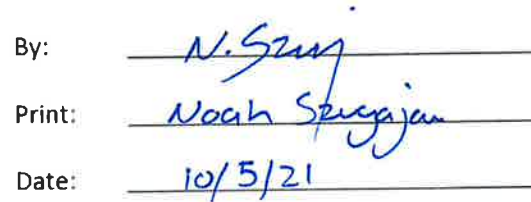 By: N. Szug
Print: Noah Szugajan
Date: 10/5/21